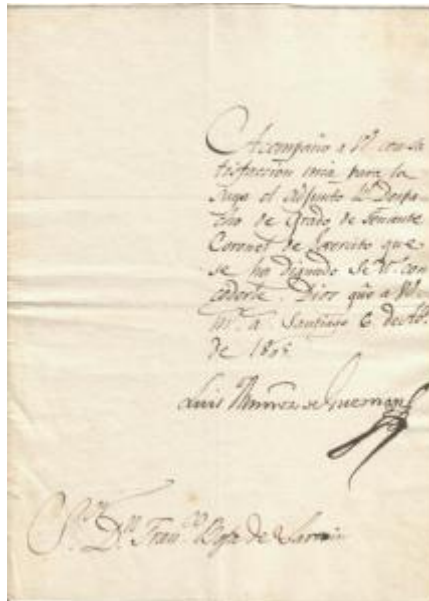 Acompaño a Vd. con sa
tisfaccion mia para la
suya el adjunto Rl. Despa-
cho de Grado de Teniente
Coronel de Exercito que
se ha dignado S. M. con
cederle. Dios gũe a Vd.
ms. as. Santiago 6 de
de
Luis Muñoz de Guzman
Sor. Dn. Franco. de